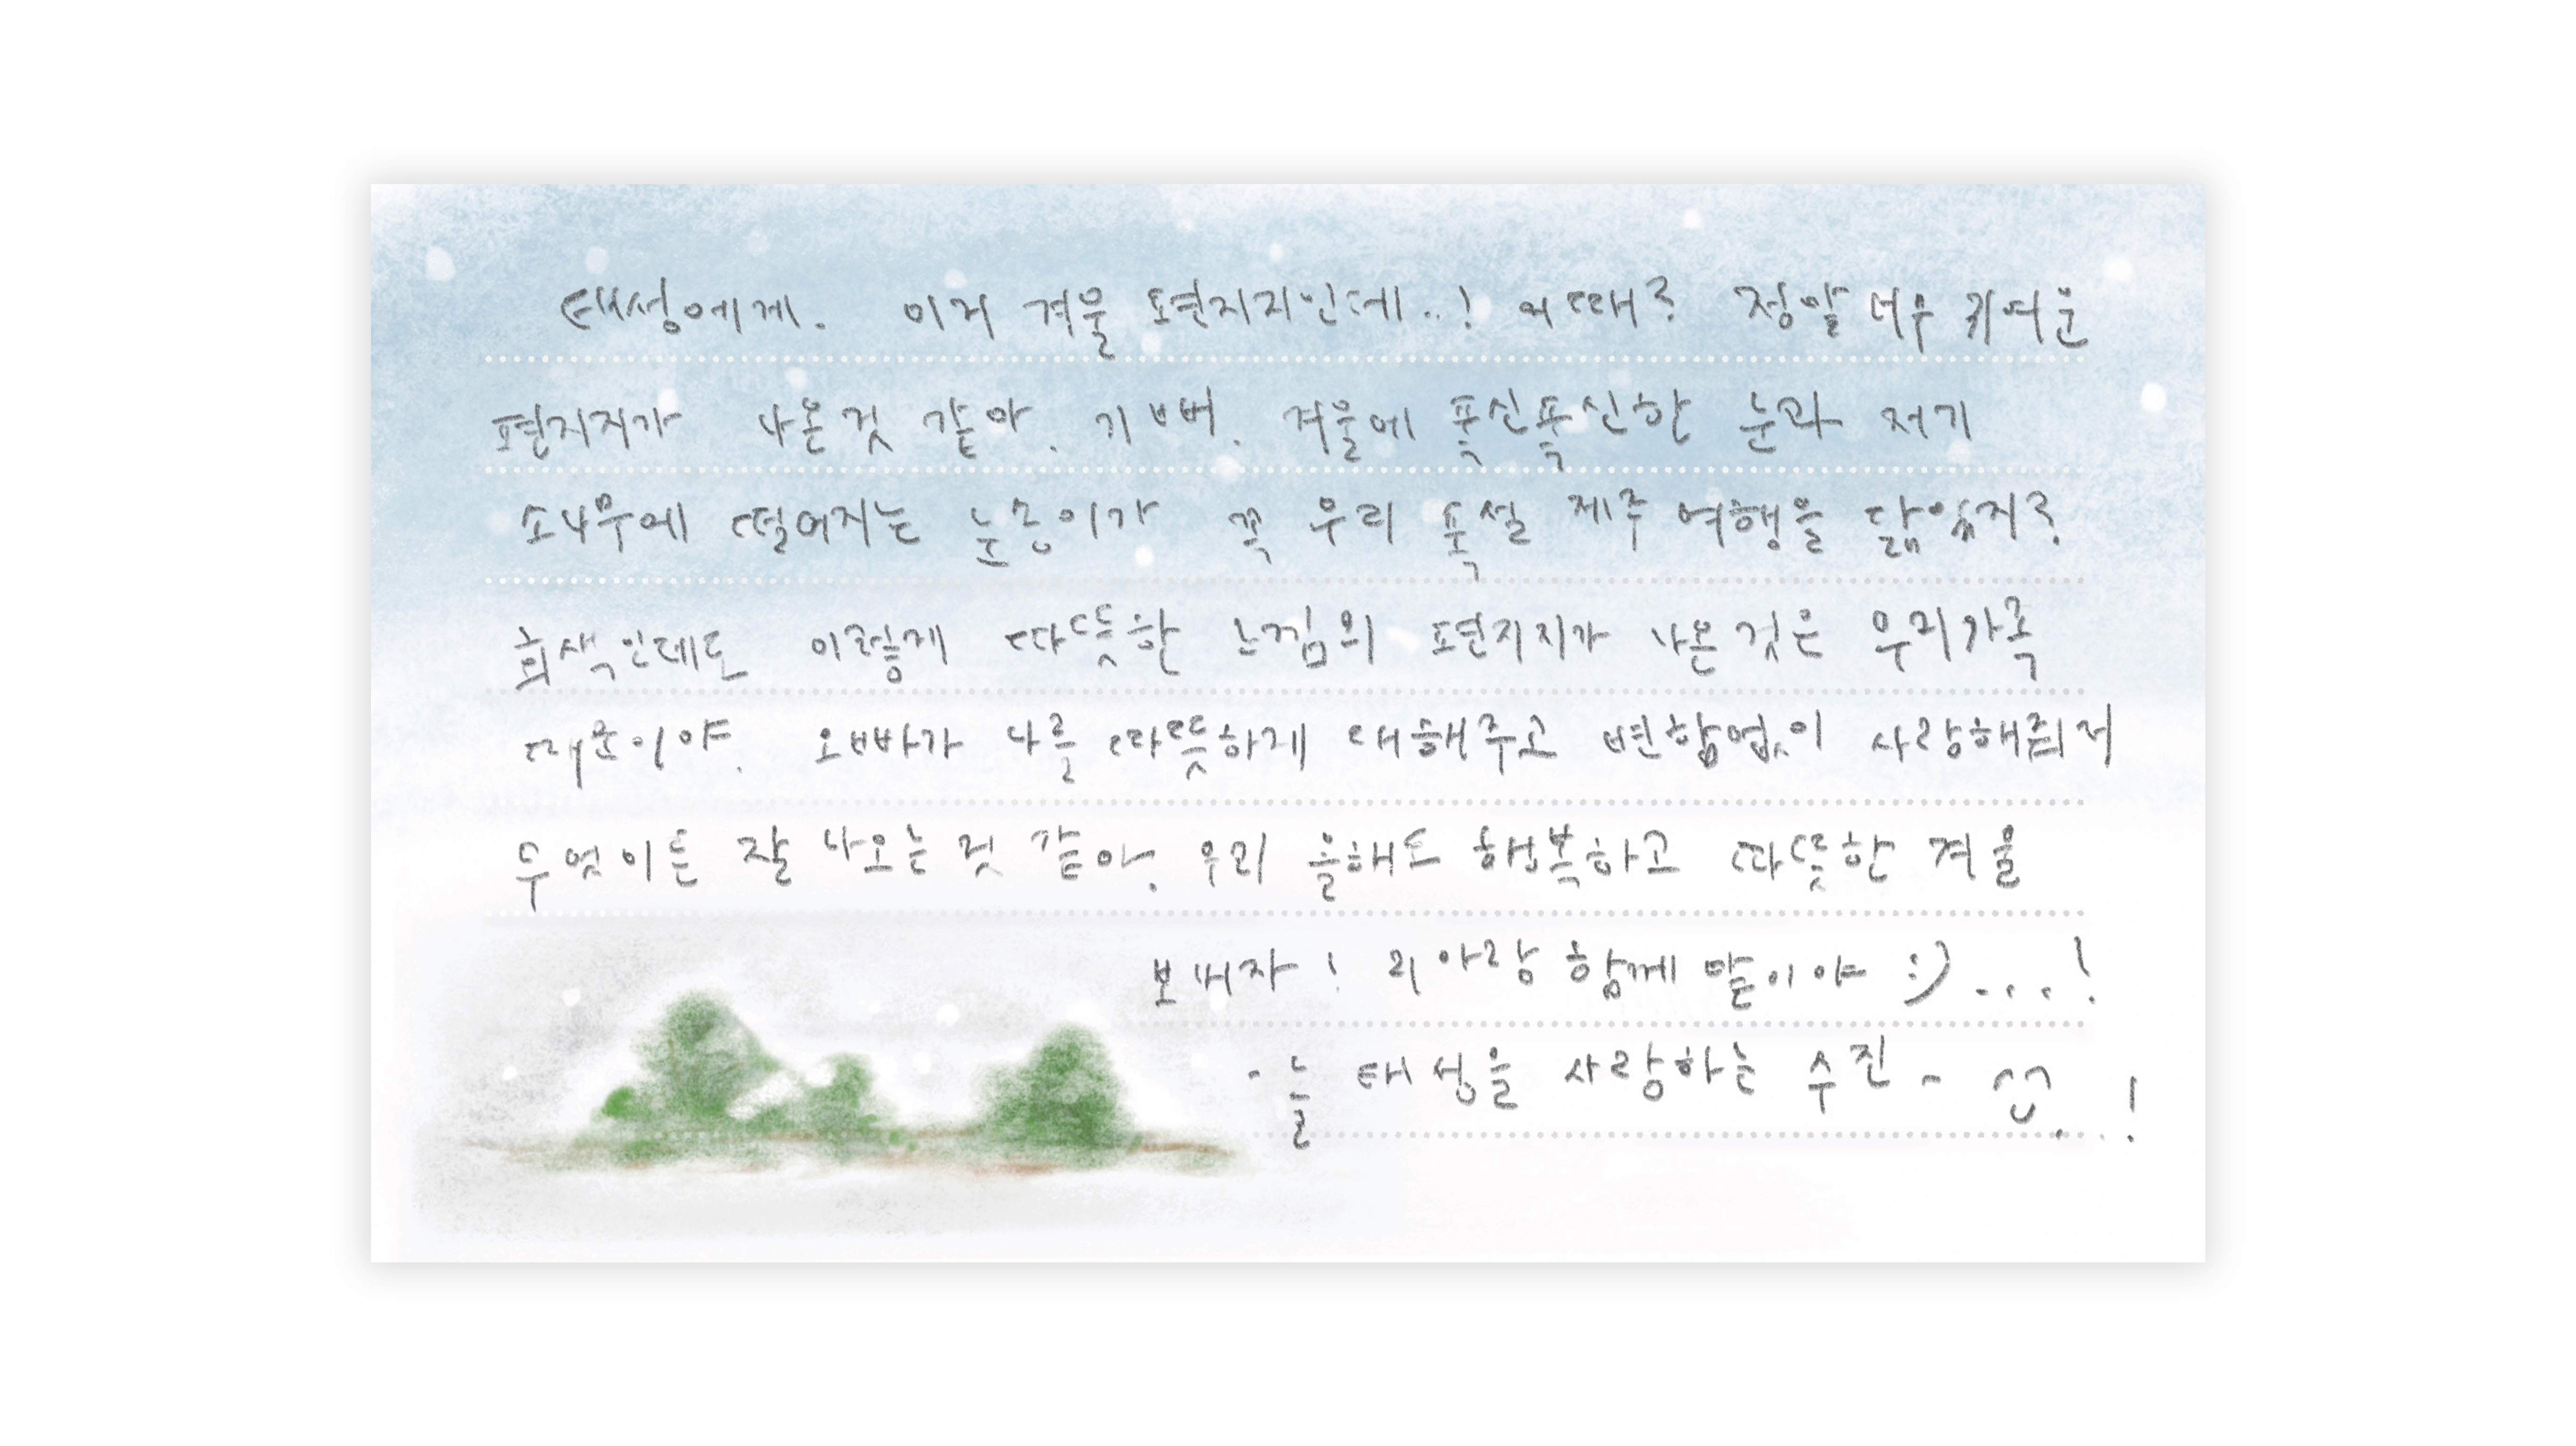 태성에게. 이거 겨울 편지지인데..! 어때? 정말 너무 귀여운
편지지가 나온것 같아. 기뻐. 겨울에 폭신폭신한 눈과 저기
소나무에 떨어지는 눈송이가 꼭 우리 폭설 제주 여행을 닮았지?
흰색인데도 이렇게 따뜻한 느낌의 편지지가 나온 것은 우리가족
때문이야. 오빠가 나를 따뜻하게 대해주고 변함없이 사랑해줘서
무엇이든 잘 나오는 것 같아. 우리 올해도 행복하고 따뜻한 겨울
보내자! 리아랑 함께 말이야 :)....!
- 늘 태성을 사랑하는 수진 - ^^...!